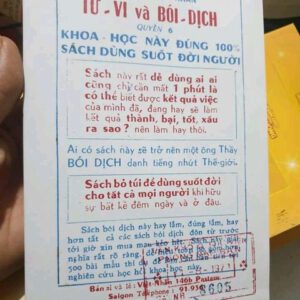 TỬ - VI và BÓI - DỊCH
QUYỂN 6
KHOA - HỌC NÀY ĐÚNG 100%
SÁCH DÙNG SUỐT ĐỜI NGƯỜI
Sách này rất dễ dùng ai ai
cũng chỉ cần mất 1 phút là
có thể biết được kết quả việc
của mình đã, đang hay sẽ làm
kết quả thành, bại, tốt, xấu
ra sao ? nên làm hay thôi.
Ai có sách này sẽ trở nên một ông Thầy
BÓI DỊCH danh tiếng nhứt Thế-giới.
Sách bỏ túi để dùng suốt đời
cho tất cả mọi người khi hữu
sự bất kể đêm ngày và ở đâu.
Sách bói dịch này hay lắm, đúng lắm, hay
hơn tất cả các sách bói dịch đôn từ trước
tới giờ xin mua mau kẻo hết. Sách này
nghĩa rất rõ ràng, dễ
500 bài mẫu thí dụ để
nghiên cứu học hỏi khoa học này
Bán sỉ và lẻ : Việt-Nhân 140b Pasteur
Saigon Telephone : 91.95
8605